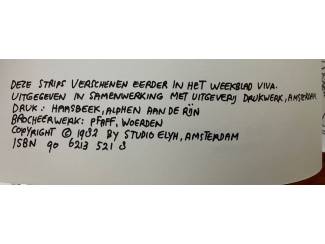 DEZE STRIPS VERSCHENEN EERDER IN HET WEEKBLAD VIVA.
UITGEGEVEN IN SAMENWERKING MET UITGEVERIJ DRUKWERK, AMSTERDAM
DRUK: HAASBEEK, ALPHEN AAN DE RIJN
BROCHEERWERK: PFAFF, WOERDEN
COPYRIGHT © 1982 BY STUDIO ELYH, AMSTERDAM
ISBN 90 6213 521 3